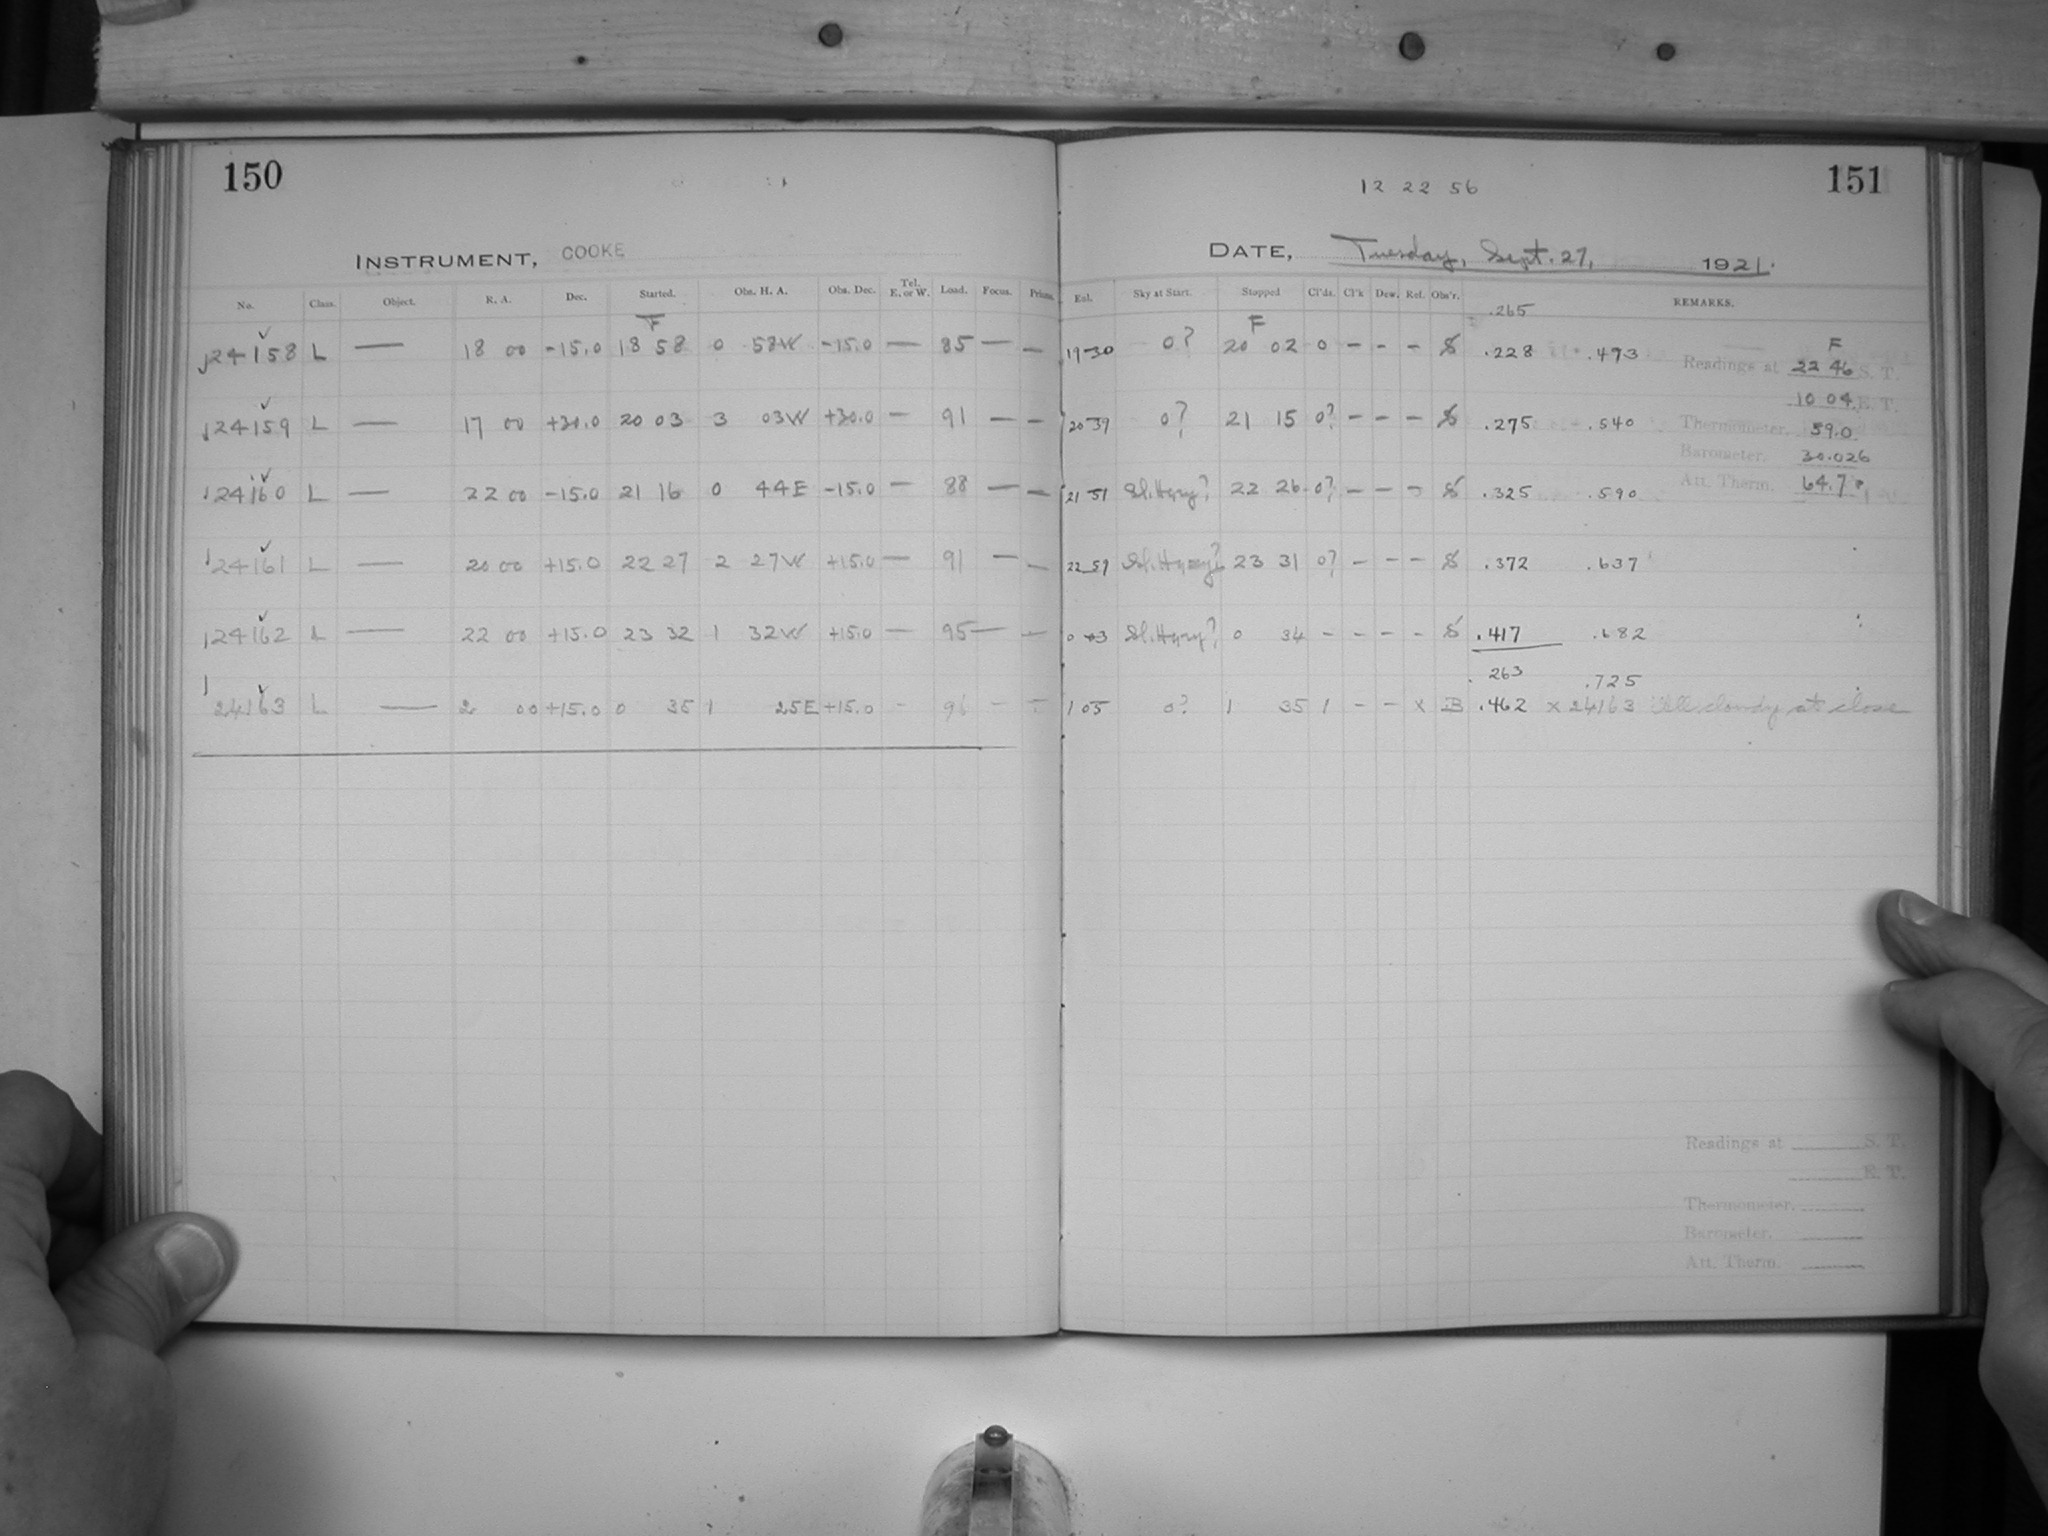 150
INSTRUMENT, COOKE
No. Class. Object. R. A. Dec. Started. Obs. H. A. Obs. Dec. Tel. E. or W. Load. Focus. Prisms.
F
24158 L — 18 00 -15.0 18 58 0 58W -15.0 — 85 — —
24159 L — 17 00 +30.0 20 03 3 03W +30.0 — 91 — —
24160 L — 22 00 -15.0 21 16 0 44E -15.0 — 88 — —
24161 L — 20 00 +15.0 22 27 2 27W +15.0 — 91 — —
24162 L — 22 00 +15.0 23 32 1 32W +15.0 — 95 — —
24163 L — 2 00 +15.0 0 35 1 25E +15.0 - 96 - -
12 22 56
151
DATE, Tuesday, Sept. 27, 1921.
Sky at Start. Stopped Cl'ds. Cl'k Dew. Rel. Obs'r. REMARKS.
.265
F
19 30 0? 20 02 0 - - - S .228 .493
20 39 0? 21 15 0? - - - S .275 .540
21 51 Sl. Hazy? 22 26 0? - - - S .325 .590
22 59 Sl. Hazy? 23 31 0? - - - S .372 .637
0 03 Sl. Hazy? 0 34 - - - - S .417 .682
.263 .725
1 05 0? 1 35 1 - - x B .462 x 24163 All cloudy at close
F
Readings at 22 46 S. T.
10 04 E. T.
Thermometer. 59.0
Barometer. 30.026
Att. Therm. 64.7
Readings at S. T.
E. T.
Thermometer.
Barometer.
Att. Therm.